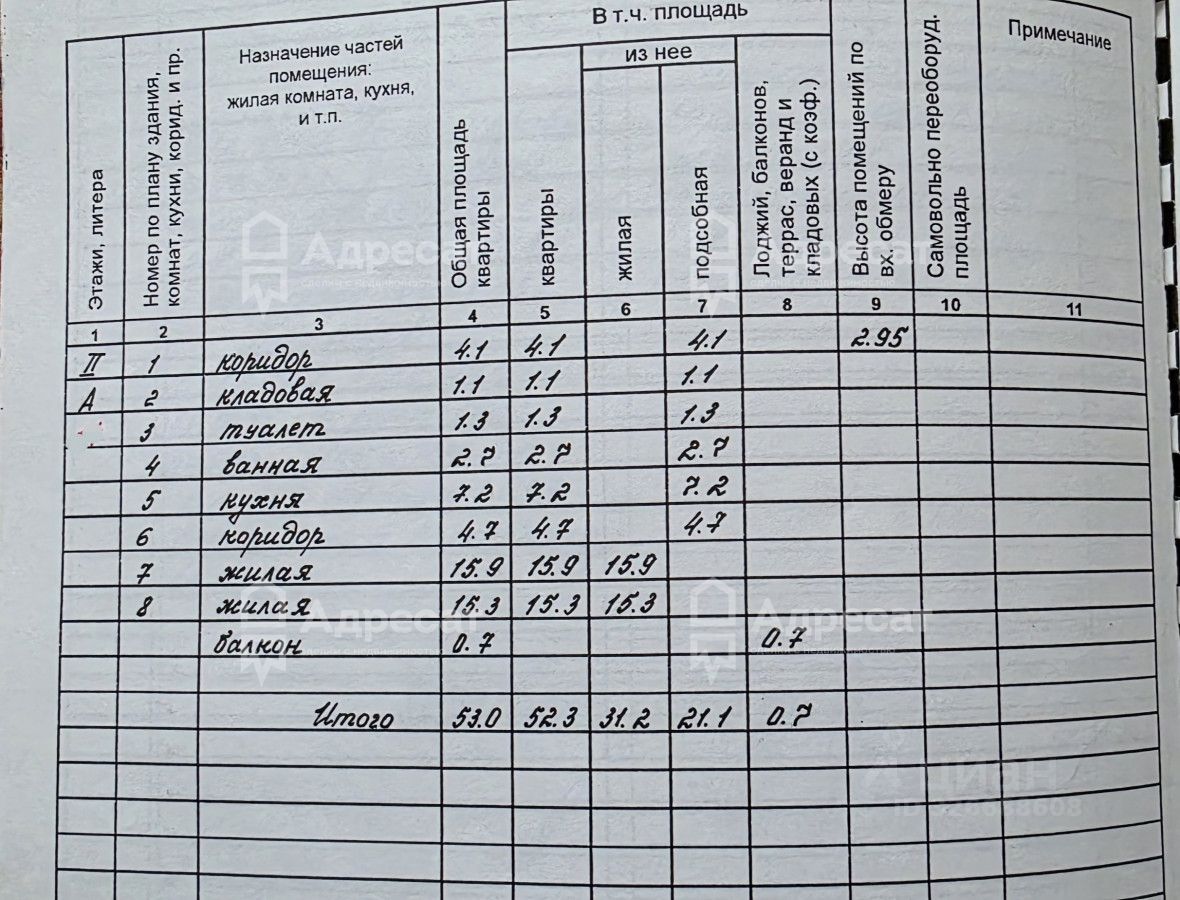 Этажи, литера
Номер по плану здания,
комнат, кухни, корид. и пр.
Назначение частей
помещения:
жилая комната, кухня,
и т.п.
Общая площадь
квартиры
В т.ч. площадь
квартиры
из нее
жилая
подсобная
Лоджий, балконов,
террас, веранд и
кладовых (с коэф.)
Высота помещений по
вх. обмеру
Самовольно переоборуд.
площадь
Примечание
Адресат
сделки с недвижимостью
Адресат
сделки с недвижимостью
1 2 3 4 5 6 7 8 9 10 11
II 1 коридор 4.1 4.1 4.1 2.95
А 2 кладовая 1.1 1.1 1.1
3 туалет 1.3 1.3 1.3
4 ванная 2.7 2.7 2.7
5 кухня 7.2 7.2 7.2
6 коридор 4.7 4.7 4.7
7 жилая 15.9 15.9 15.9
8 жилая 15.3 15.3 15.3
Адресат
сделки с недвижимостью
Адресат
сделки с недвижимостью
балкон 0.7 0.7
Итого 53.0 52.3 31.2 21.1 0.7
циан